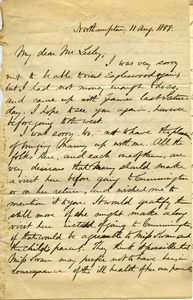 Northampton, 11 Aug. 1888.
My dear Mr Lesley,
I was very sorry
not to be able to visit Eaglewood again
but I had not money enough to do so,
and came up with James last Satur-
day. I hope to see you again, however
before going to the west.
I was sorry too, not to have the pleasure
of bringing Mary up with me. All
the folks here, and each one of them, are
very desirous that Mary should make
a visit here before going to Cummington
or on her return, and wished me to
mention it to you. It would gratify them
still more if she might make a long
visit here instead of going to Cummington
if that would be agreeable to Miss
and the child's parents. They think it possible that
Miss may prefer not to have her in
consequence of the ill health of her